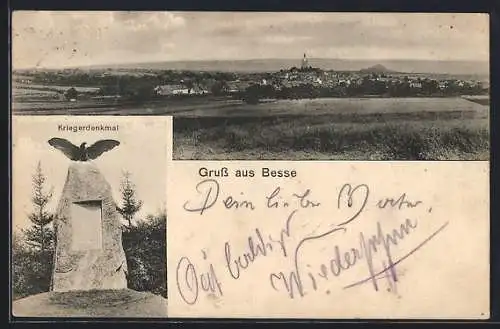 Kriegerdenkmal
Gruß aus Besse
Dein lieber Vater.
baldiges
Wiedersehn